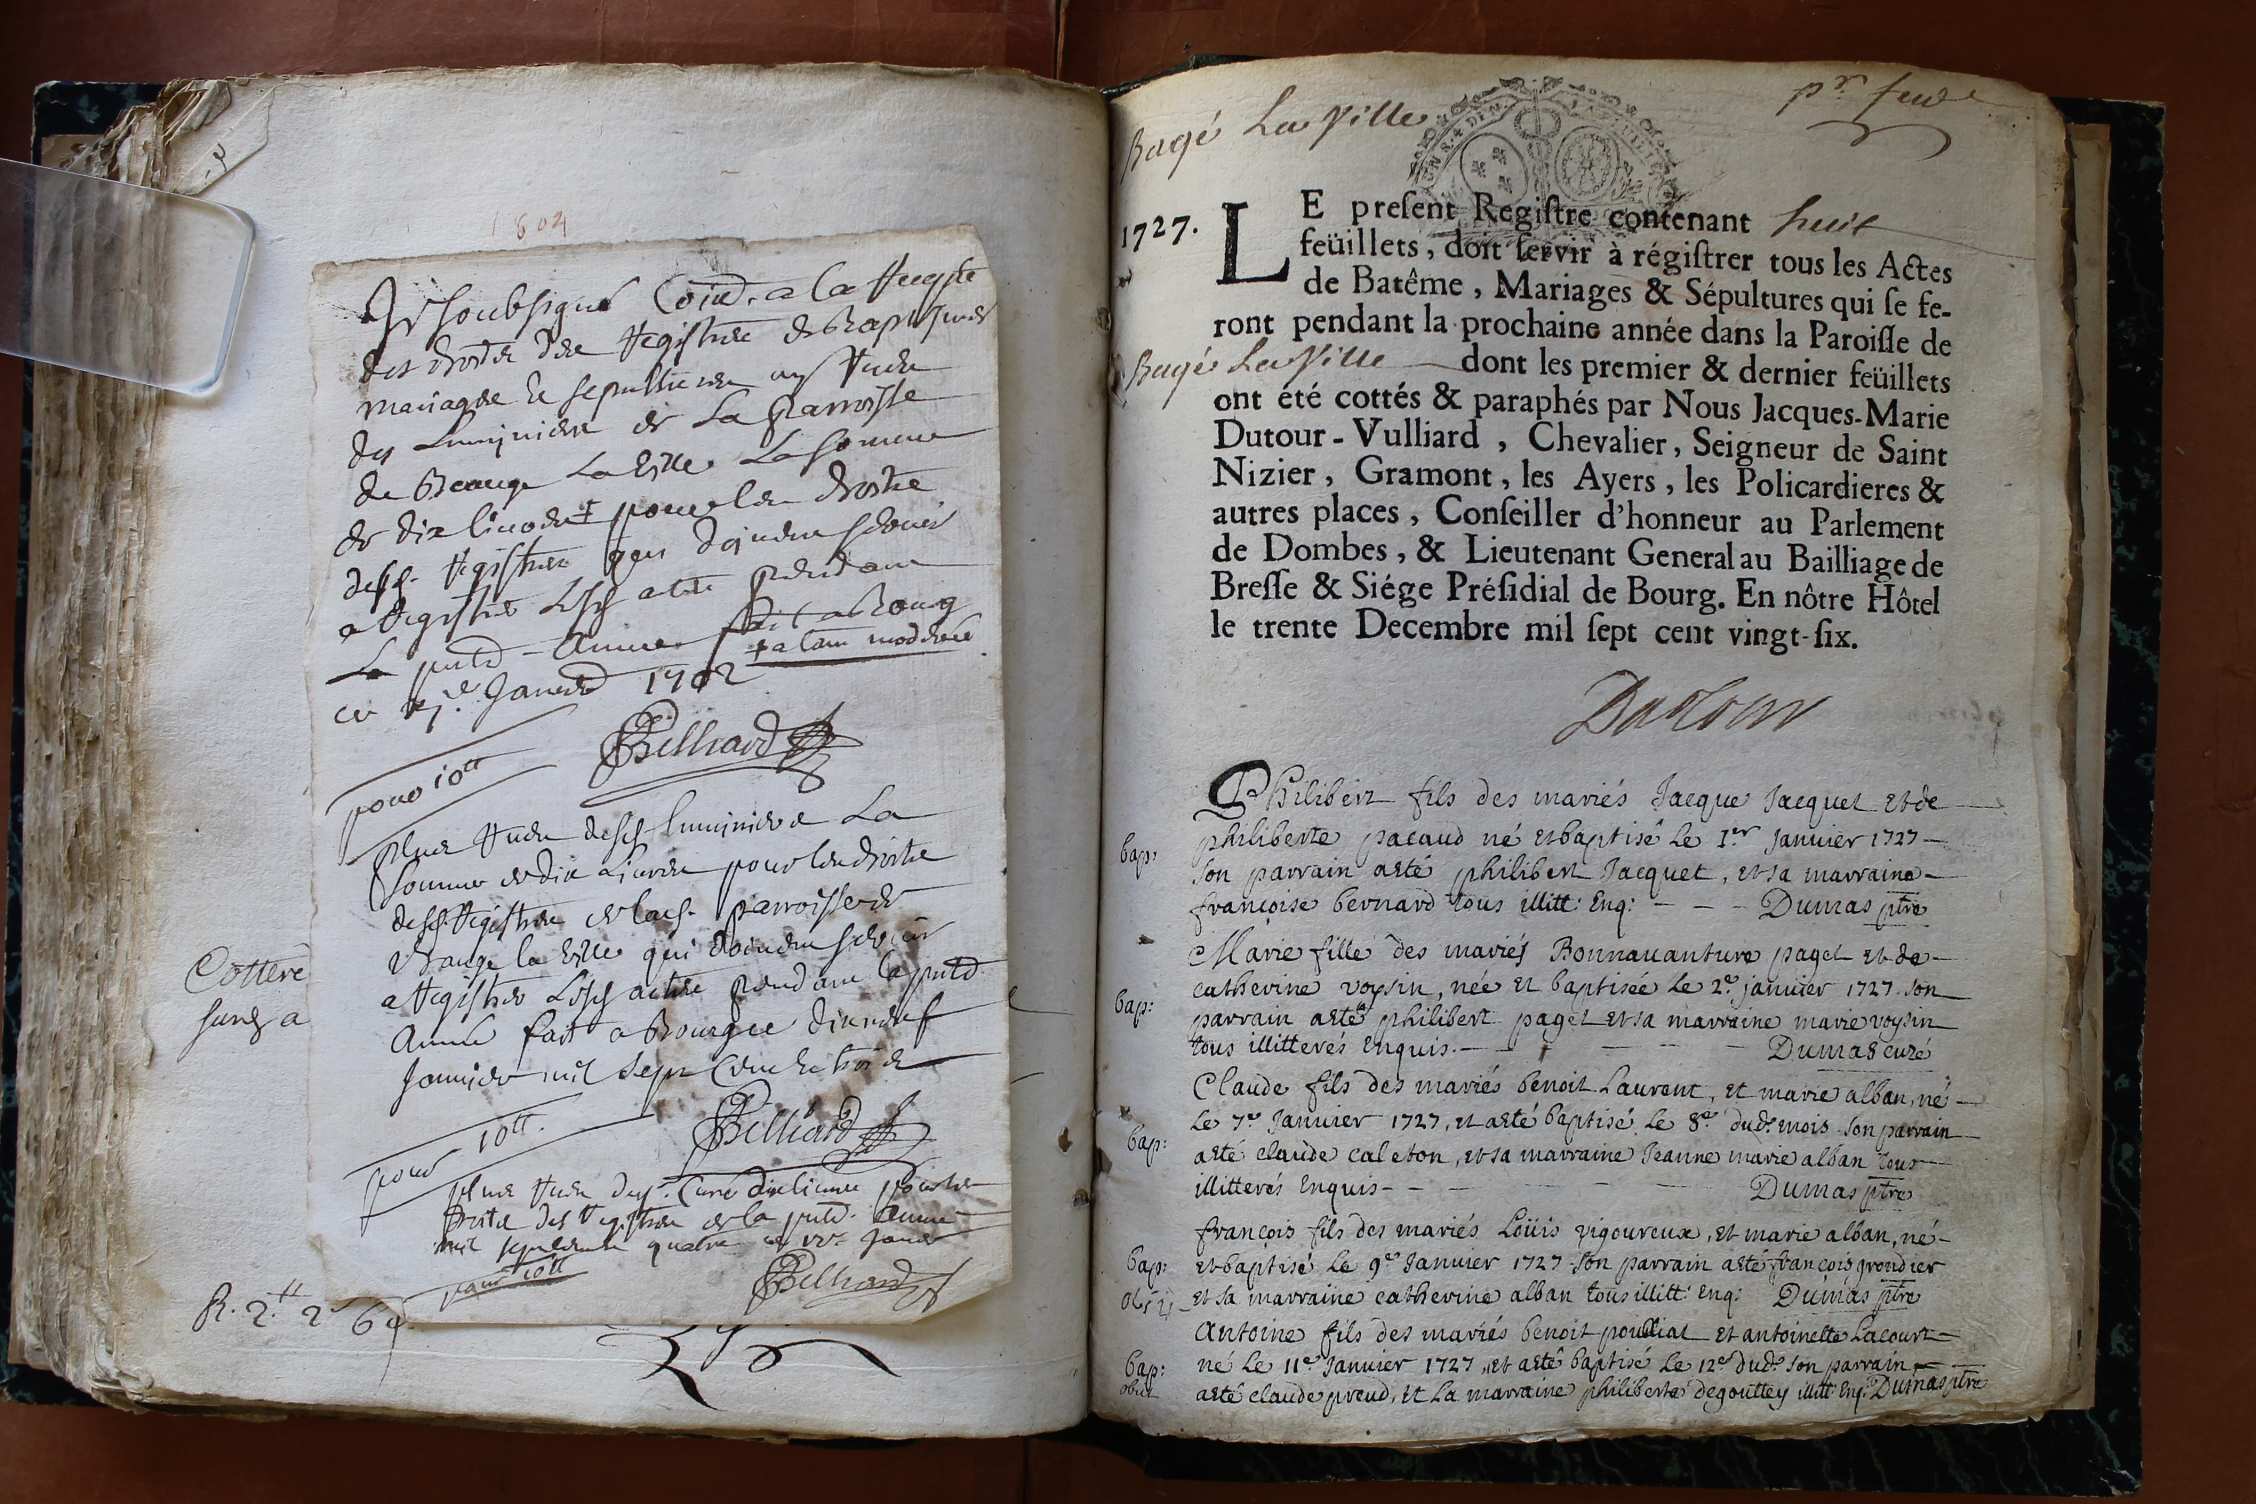 1804
Je soubsigné Comd. a la Recepte
des droits des Registres de Baptesmes
mariages et sepultures ay Receu
des Luminiers de La parroisse
de Beauge La Ville La somme
de dix livres + pour les droits
desd. Registres qui doivent servir
a Registrer Lesd actes pendant
La pnte Année fait a Bourg
+ a lam moderée
ce Janvier 1702
Belliard
pour 10tt
plus Receu desd luminiers La
somme de dix Livres pour les droits
desd Registres de lad. parroisse de
Beauge la Ville qui doivent servir
a Registrer Lesd actes pendant la pnte
Année fait a Bourg ce dixneuf
Janvier mil sept Cent et trois
Belliard
pour 10tt
plus Receu dud. Curé dix livres pour les
droits des Registres de la pnte. année
mil sept cent quatre ce Janvier
pour 10tt
Belliard
Cottere
R. 2.tt 2
Bagé La Ville
pr. feuile
1727.
LE preſent Regiſtre contenant huit
feüillets, doit ſervir à régiſtrer tous les Actes
de Batême, Mariages & Sépultures qui ſe fe-
ront pendant la prochaine année dans la Paroiſſe de
Bagé La Ville dont les premier & dernier feüillets
ont été cottés & paraphés par Nous Jacques-Marie
Dutour-Vulliard, Chevalier, Seigneur de Saint
Nizier, Gramont, les Ayers, les Policardieres &
autres places, Conſeiller d'honneur au Parlement
de Dombes, & Lieutenant General au Bailliage de
Breſſe & Siége Préſidial de Bourg. En nôtre Hôtel
le trente Decembre mil ſept cent vingt-ſix.
Dutour
Philibert fils des mariés Jacque Jacquet et de
bap: philiberte pacaud né et baptisé Le 1.er Janvier 1727
son parrain aété philibert Jacquet, et sa marraine
françoise bernard tous illitt: Enq: - - - Dumas ptre
Marie fille des mariés Bonnauanture paget et de
catherine voysin, née et baptisée Le 2.e janvier 1727 son
bap: parrain aété philibert paget et sa marraine marie voysin
tous illitterés Enquis. - - - - Dumas curé
Claude fils des mariés benoit Laurent, et marie alban, né
Le 7.e Janvier 1727, et aété baptisé Le 8.e dud. mois son parrain
bap: aété claude caleton, et sa marraine Jeanne marie alban tous
illitterés Enquis - - - - - Dumas ptre
françois fils des mariés Loüis vigoureux, et marie alban, né
bap: et baptisé Le 9.e Janvier 1727 son parrain aété françois grondier
et sa marraine catherine alban tous illitt: Enq: Dumas ptre
Antoine fils des mariés benoit poulliat et antoinette Lacourt
bap: né Le 11.e Janvier 1727, et aété baptisé Le 12.e dud. son parrain
obiit aété claude preud, et La marraine philiberte degouttey illitt: Enq: Dumas ptre